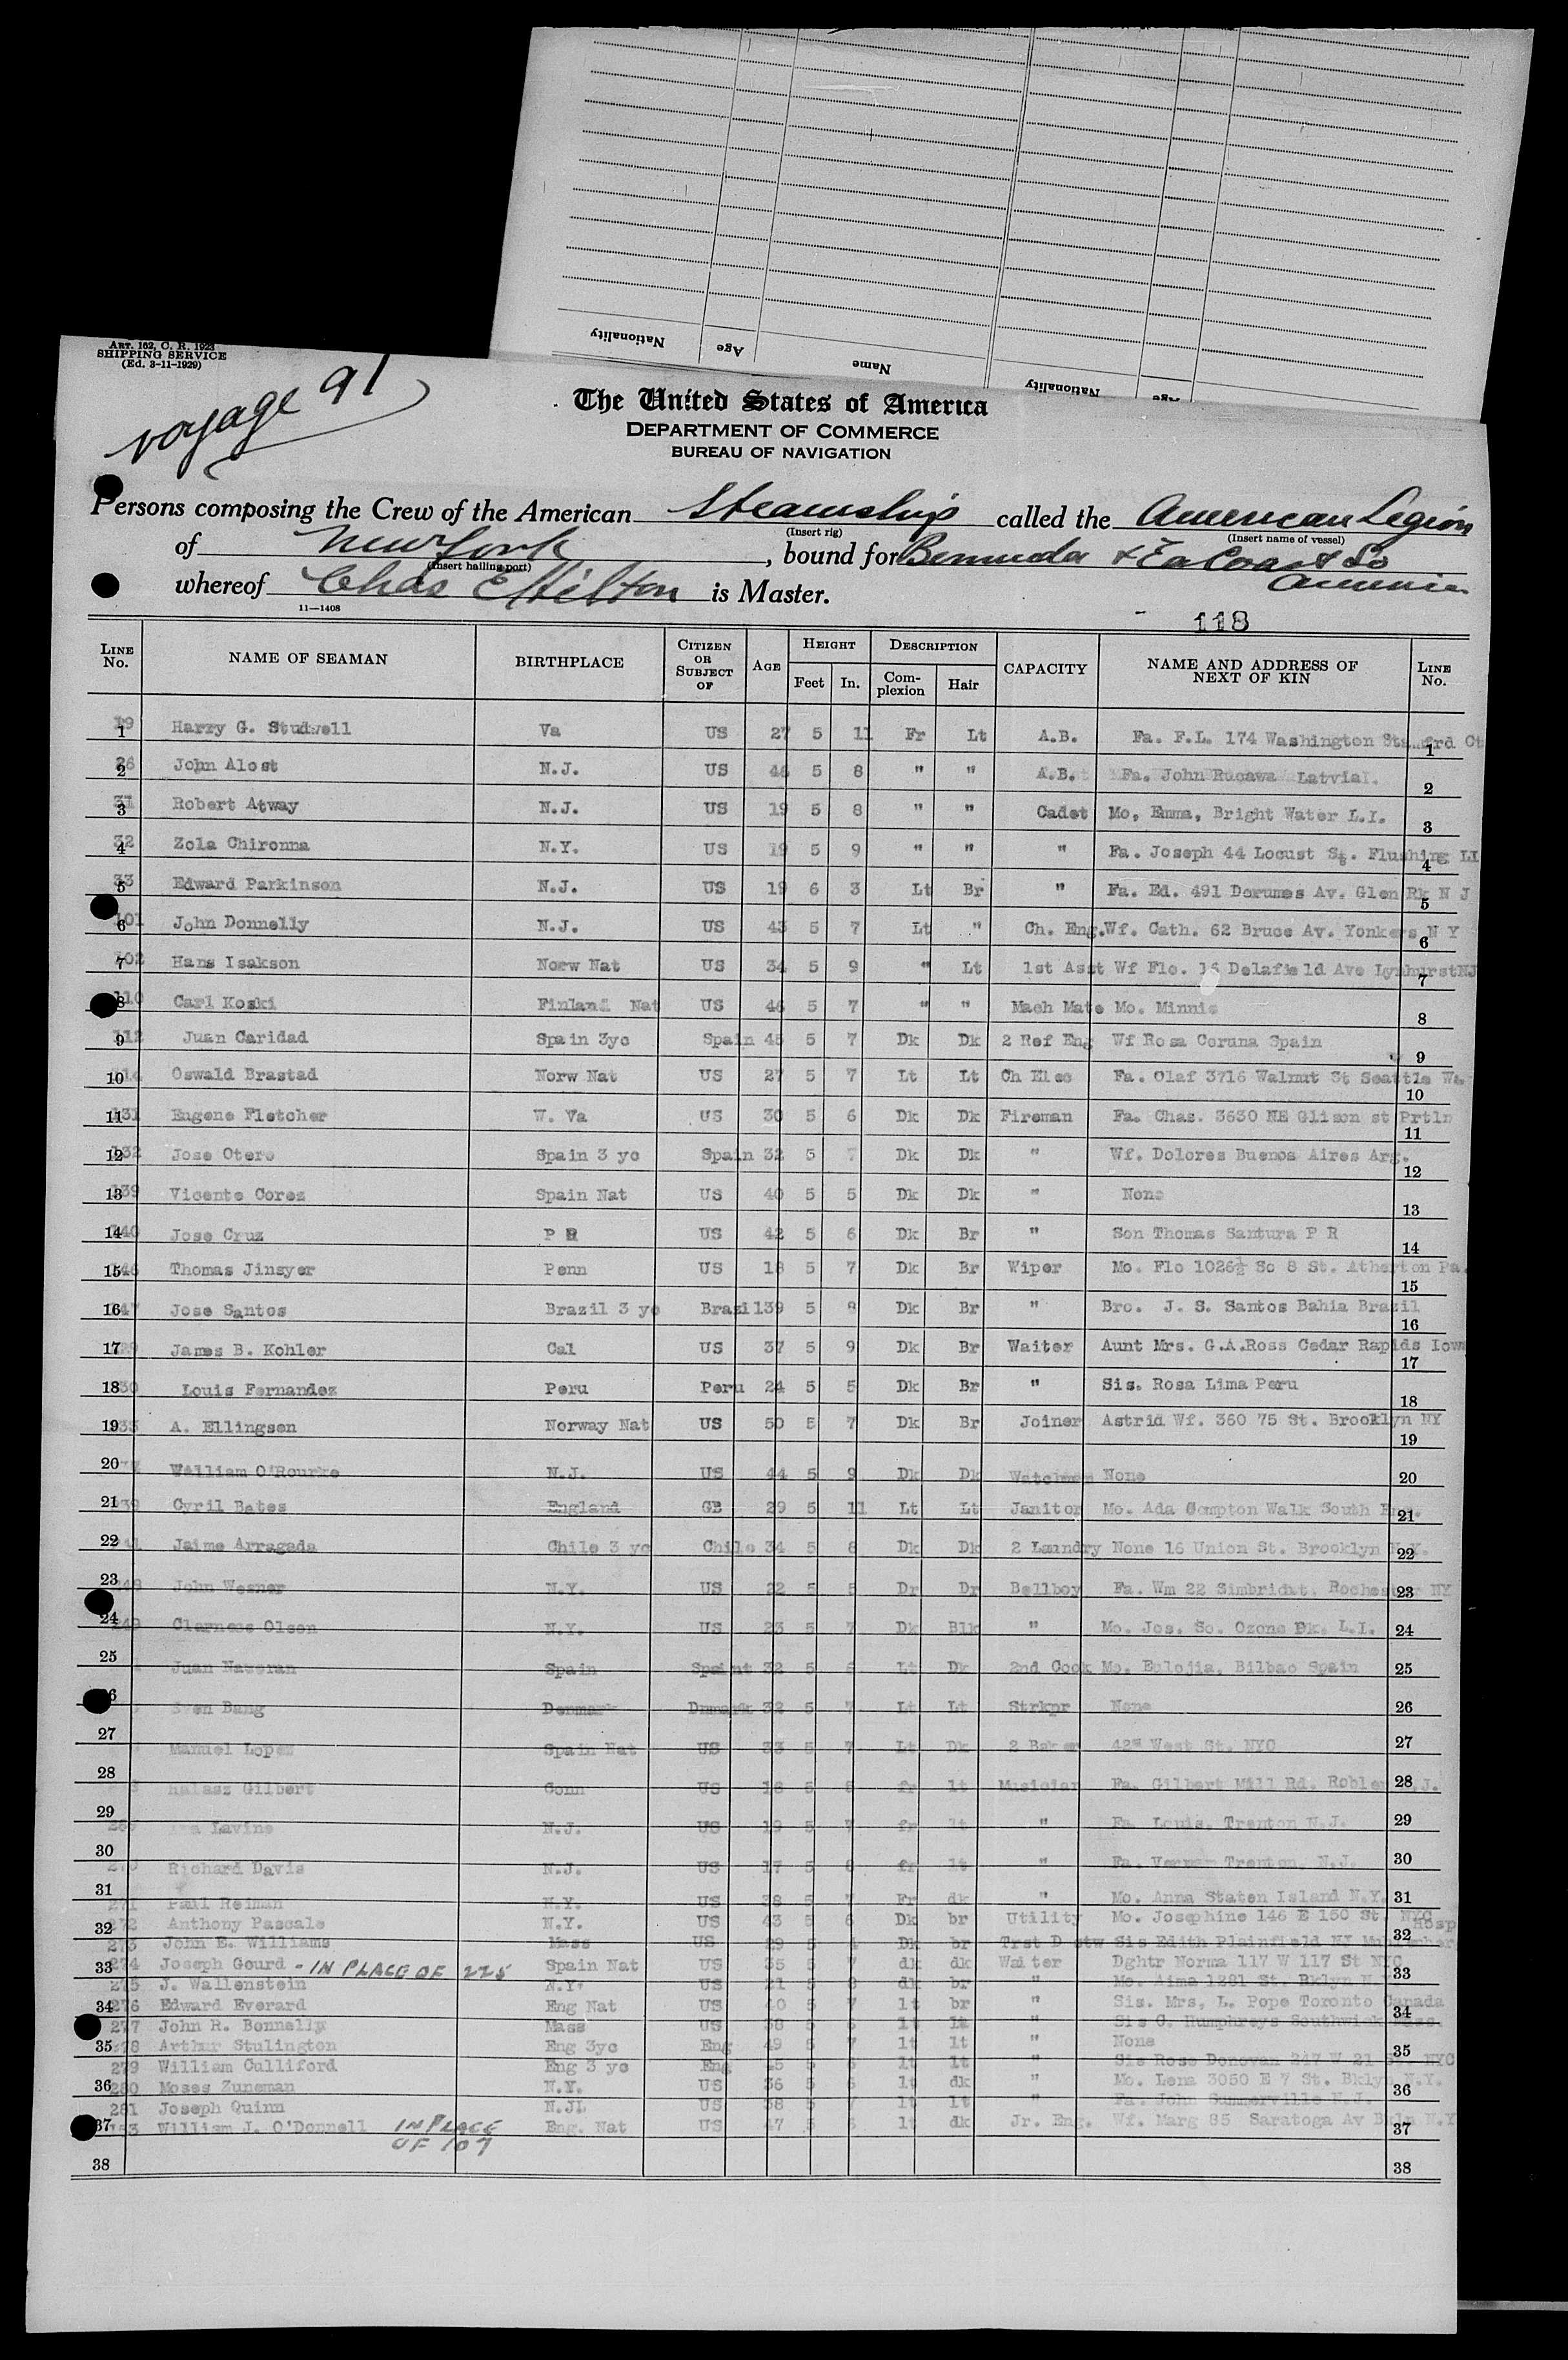 Nationality
Age
Name
Nationality
Age
ART. 162, C. R. 1923
SHIPPING SERVICE
(Ed. 3-11-1929)
voyage 91
The United States of America
DEPARTMENT OF COMMERCE
BUREAU OF NAVIGATION
Persons composing the Crew of the American Steamship called the American Legion
(Insert rig) (Insert name of vessel)
of New York, bound for Bermuda & Ea Coast So America
(Insert hailing port)
whereof Chas E Hilton is Master.
11—1408
118
LINE No. NAME OF SEAMAN BIRTHPLACE CITIZEN OR SUBJECT OF AGE HEIGHT Feet In. DESCRIPTION Complexion Hair CAPACITY NAME AND ADDRESS OF NEXT OF KIN LINE No.
1 Harry G. Studwell Va US 27 5 11 Fr Lt A.B. Fa. F.L. 174 Washington Stamford Ct 1
2 John Alost N.J. US 46 5 8 " " A.B. Fa. John Rucawa Latvia. 2
3 Robert Atway N.J. US 19 5 8 " " Cadet Mo, Emma, Bright Water L.I. 3
4 Zola Chironna N.Y. US 19 5 9 " " " Fa. Joseph 44 Locust St. Flushing LI 4
5 Edward Parkinson N.J. US 19 6 3 Lt Br " Fa. Ed. 491 Dorumes Av. Glen Rk N J 5
6 John Donnelly N.J. US 43 5 7 Lt " Ch. Eng. Wf. Cath. 62 Bruce Av. Yonkers N Y 6
7 Hans Isakson Norw Nat US 34 5 9 " Lt 1st Asst Wf Flo. 16 Delafield Ave Lynhurst NJ 7
8 Carl Koski Finland Nat US 46 5 7 " " Mach Mate Mo. Minnie 8
9 Juan Caridad Spain 3yc Spain 45 5 7 Dk Dk 2 Ref Eng Wf Rosa Coruna Spain 9
10 Oswald Brastad Norw Nat US 27 5 7 Lt Lt Ch Elec Fa. Olaf 3716 Walnut St Seattle Wa. 10
11 Eugene Fletcher W. Va US 30 5 6 Dk Dk Fireman Fa. Chas. 3630 NE Glison st Prtln 11
12 Jose Otero Spain 3 yc Spain 32 5 7 Dk Dk " Wf. Dolores Buenos Aires Arg. 12
13 Vicente Cores Spain Nat US 40 5 5 Dk Dk " None 13
14 Jose Cruz P R US 42 5 6 Dk Br " Son Thomas Santura P R 14
15 Thomas Jinsyer Penn US 18 5 7 Dk Br Wiper Mo. Flo 1026½ So 8 St. Atherton Pa. 15
16 Jose Santos Brazil 3 yc Brazil 39 5 8 Dk Br " Bro. J. S. Santos Bahia Brazil 16
17 James B. Kohler Cal US 37 5 9 Dk Br Waiter Aunt Mrs. G.A.Ross Cedar Rapids Iowa 17
18 Louis Fernandez Peru Peru 24 5 5 Dk Br " Sis. Rosa Lima Peru 18
19 A. Ellingsen Norway Nat US 50 5 7 Dk Br Joiner Astrid Wf. 360 75 St. Brooklyn NY 19
20 William O'Rourke N.J. US 44 5 9 Dk Dk Watchman None 20
21 Cyril Bates England GB 29 5 11 Lt Lt Janitor Mo. Ada Compton Walk South Eng. 21
22 Jaime Arragada Chile 3 yc Chile 34 5 8 Dk Dk 2 Laundry None 16 Union St. Brooklyn N.Y. 22
23 John Wesner N.Y. US 22 5 5 Dr Dr Bellboy Fa. Wm 22 Rochester NY 23
24 Clarness Olson N.Y. US 23 5 7 Dk Blk " Mo. Jos. So. Ozone Pk. L.I. 24
25 Juan Spain 32 5 Lt Dk 2nd Cook Mo. Eulojia, Bilbao Spain 25
26 Sven Bang Denmark Dnmark 32 5 7 Lt Lt Strkpr None 26
27 Manuel Lopez Spain Nat US 33 5 7 Lt Dk 2 Baker 42 West St. NYC 27
28 Gilbert Conn US 18 5 8 fr lt Musician Fa. Gilbert Mill Rd. N.J. 28
29 Lavine N.J. US 19 5 7 fr lt " Fa. Louis, Trenton N.J. 29
30 Richard Davis N.J. US 17 5 8 fr lt " Fa. Trenton, N.J. 30
31 271 Paul Reiman N.Y. US 38 5 7 Fr dk " Mo. Anna Staten Island N.Y. 31
32 272 Anthony Pascale N.Y. US 43 5 6 Dk br Utility Mo. Josephine 146 E 150 St. NYC 32
273 John E. Williams Mass US 29 5 4 Dk br Trst D stw Sis Edith Plainfield NJ Hosp
33 274 Joseph Gourd - IN PLACE OF 225 Spain Nat US 35 5 7 dk dk Waiter Dghtr Norma 117 W 117 St NYC 33
275 J. Wallenstein N.Y. US 21 5 8 dk br " Mo. Aima 1281 St. Bklyn N.Y.
34 276 Edward Everard Eng Nat US 40 5 7 lt br " Sis. Mrs, L. Pope Toronto Canada 34
277 John R. Bonnelly Mass US 38 5 6 lt lt " Sis C. Humphreys Southwick Mass.
35 278 Arthur Stulington Eng 3yc Eng 49 5 7 lt lt " None 35
279 William Culliford Eng 3 yc Eng 45 5 6 lt lt " Sis Rose Donovan 247 W 21 St. NYC
36 280 Moses Zuneman N.Y. US 36 5 6 lt dk " Mo. Lena 3050 E 7 St. Bklyn N.Y. 36
281 Joseph Quinn N.J. US 38 5 7 lt lt " Fa. John Summerville N.J.
37 153 William J. O'Donnell IN PLACE OF 107 Eng. Nat US 47 5 6 lt dk Jr. Eng. Wf. Marg 85 Saratoga Av Bkln N.Y 37
38 38